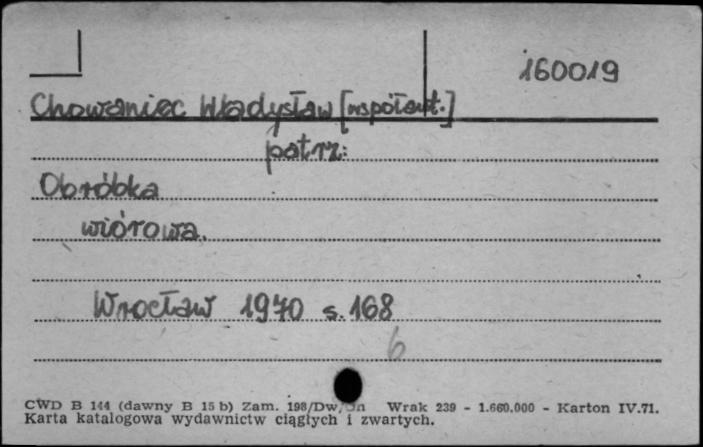 160019
Chowaniec Władysław [współaut.]
patrz:
Obróbka
wiórowa.
Wrocław 1970 s. 168
6
CWD B 144 (dawny B 15 b) Zam. 198/Dw/ Wrak 239 - 1.660.000 - Karton IV.71.
Karta katalogowa wydawnictw ciągłych i zwartych.